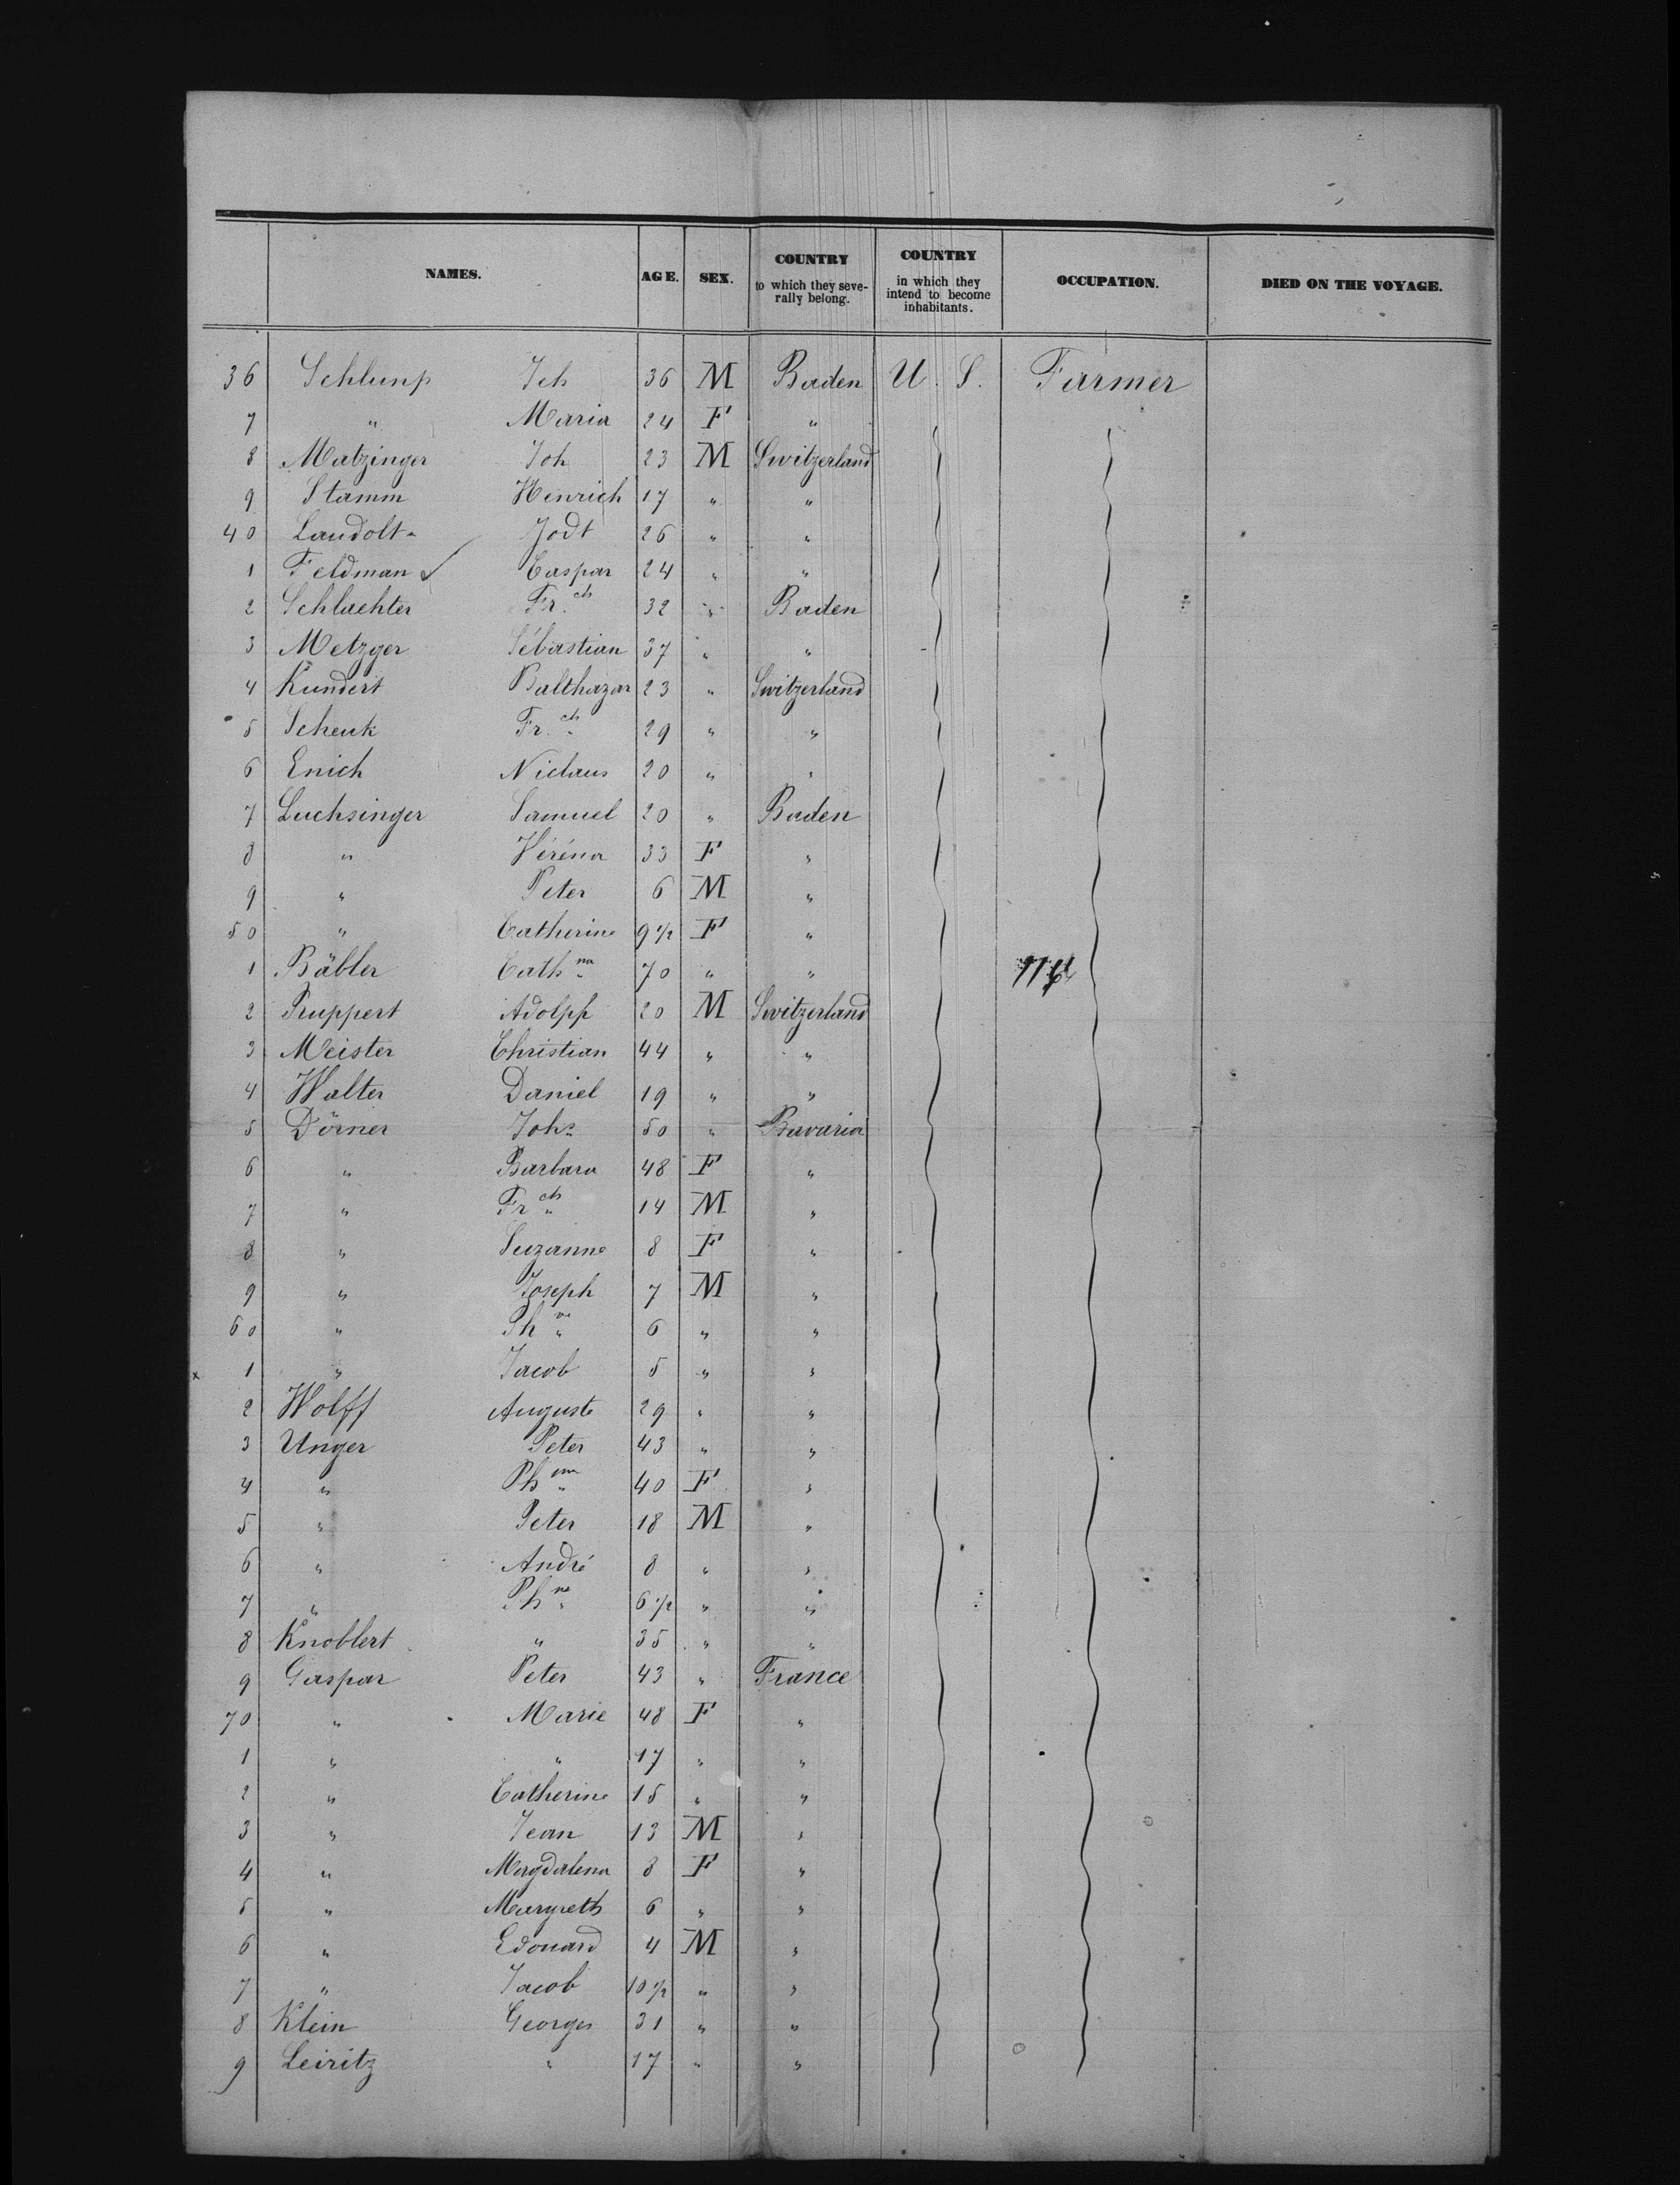 NAMES. AGE. SEX. COUNTRY to which they severally belong. COUNTRY in which they intend to become inhabitants. OCCUPATION. DIED ON THE VOYAGE.
36 Schlump Joh 36 M Baden U. S. Farmer
7 " Maria 24 F "
8 Matzinger Joh 23 M Switzerland
9 Stamm Henrich 17 " "
40 Landolt Jodt 26 " "
1 Feldman Caspar 24 " "
2 Schlachter Fr.ch 32 " Baden
3 Metzger Sébastian 37 " "
4 Kundert Balthazar 23 " Switzerland
5 Schenk Fr.ch 29 " "
6 Enich Niclaus 20 " "
7 Luchsinger Samuel 20 " Baden
8 " Véréna 33 F "
9 " Peter 6 M "
50 " Catherine 9 1/2 F "
1 Bäbler Cath na 70 " "
2 Ruppert Adolph 20 M Switzerland
3 Meister Christian 44 " "
4 Walter Daniel 19 " "
5 Dörner Johs 50 " Bavaria
6 " Barbara 48 F "
7 " Fr ch 14 M "
8 " Suzanne 8 F "
9 " Joseph 7 M "
60 " Ph 6 " "
1 " Jacob 5 " "
2 Wolff Auguste 29 " "
3 Unger Peter 43 " "
4 " Ph 40 F "
5 " Peter 18 M "
6 " André 8 " "
7 " Ph 6 1/2 " "
8 Knoblert " 35 " "
9 Gaspar Peter 43 " France
70 " Marie 48 F "
1 " " 17 " "
2 " Catherine 15 " "
3 " Jean 13 M "
4 " Magdalena 8 F "
5 " Margreth 6 " "
6 " Edouard 4 M "
7 " Jacob 10 1/2 " "
8 Klein Georges 31 " "
9 Leiritz " 17 " "